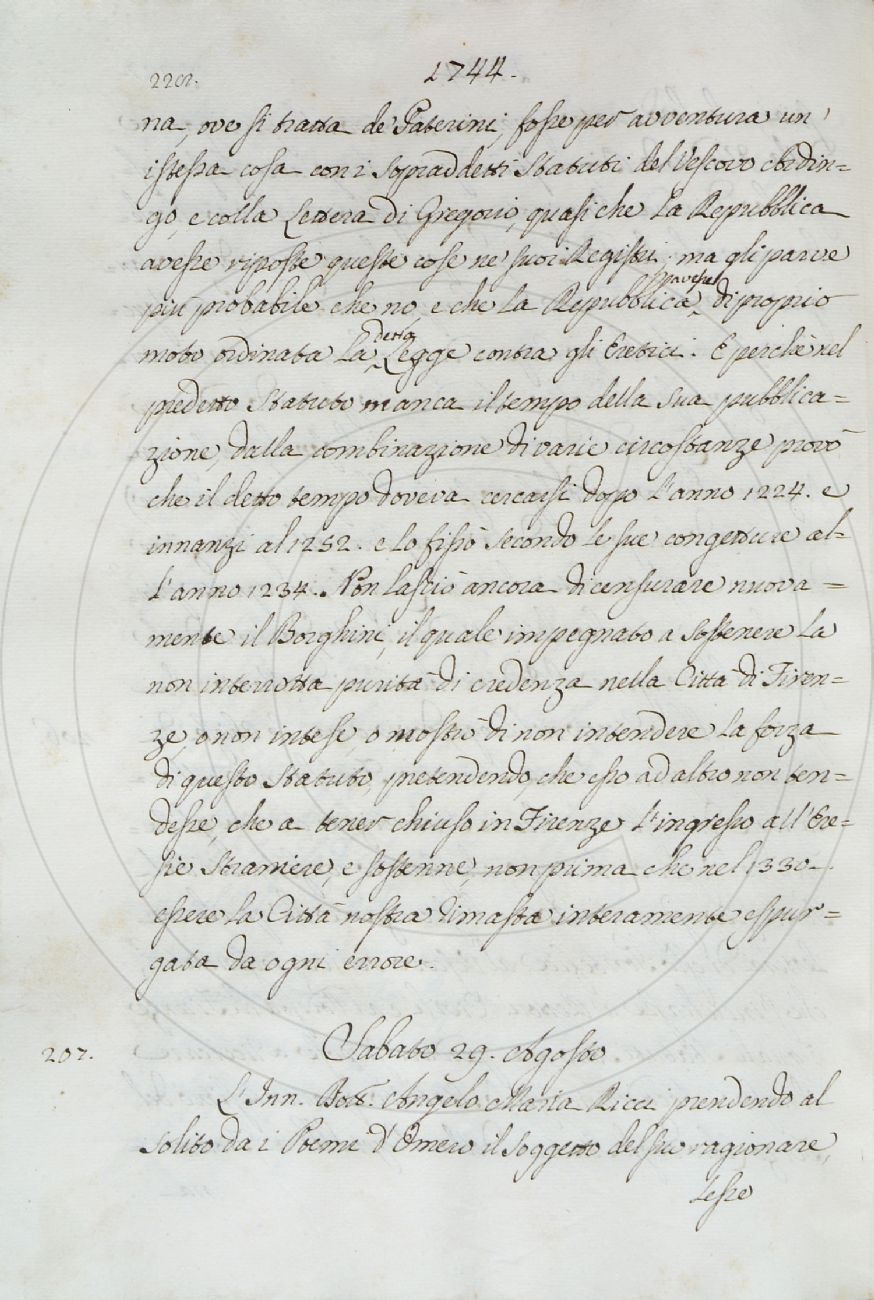 2202.
1744.
na, ove si tratta de' Paterini, fosse per avventura un'
istessa cosa con i sopraddetti Statuti del Vescovo Ardin=
go, e colla Lettera di Gregorio, quasi che la Repubblica
avesse riposte queste cose ne' suoi Registri; ma gli parve
più probabile che no, e che la Repubblica avesse di proprio
moto ordinata la detta Legge contra gli Eretici. E perchè nel
predetto Statuto manca il tempo della sua pubblica=
zione, dalla combinazione di varie circostanze provò
che il detto tempo doveva cercarsi dopo l'anno 1224. e
innanzi al 1252. e lo fissò secondo le sue congetture al=
l'anno 1234. Non lasciò ancora di censurare nuova=
mente il Borghini, il quale impegnato a sostenere la
non interrotta purità di credenza nella Città di Firen=
ze, o non intese, o mostrò di non intendere la forza
di questo Statuto, pretendendo, che esso ad altro non ten=
desse, che a tener chiuso in Firenze l'ingresso all'Ere=
sie straniere, e sostenne, non prima che nel 1330.
essere la Città nostra rimasta interamente espur=
gata da ogni errore.
207.
Sabato 29. Agosto
L'Inn. Dott. Angelo Maria Ricci prendendo al
solito da i Poemi d'Omero il soggetto del suo ragionare,
lesse